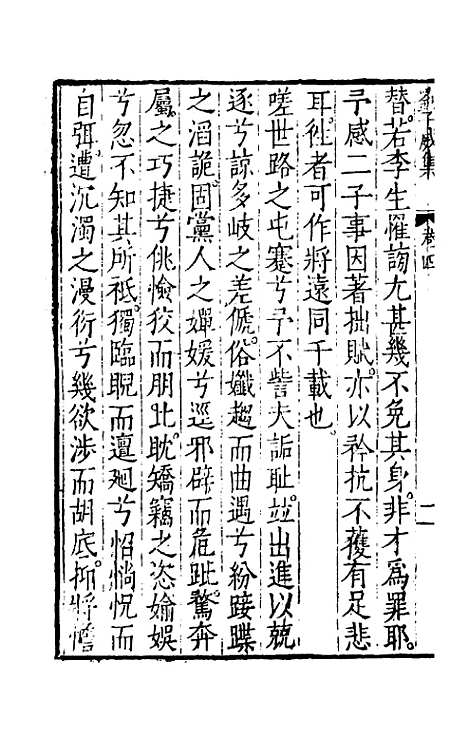 劉子威集 卷四 二
替。若李生罹詾尤甚幾不免其身。非才爲罪耶。
予感二子事因著拙賦。亦以矜抗不獲有足悲
耳。徃者可作將遠同千載也。
嗟世路之屯蹇兮予不訾夫詬耻。竝出進以兢
逐兮諒多岐之差傂。俗孅趨而曲遇兮紛踥蹀
之滔詭。固黨人之嬋媛兮逕邪辟而危跐。騖奔
屬之巧捷兮佻憸狡而朋比。眈矯竊之恣婾娛
兮忽不知其所祗。獨臨睨而邅廻兮怊惝怳而
自弭。遭沉濁之漫衍兮幾欲涉而胡底。抑將憺